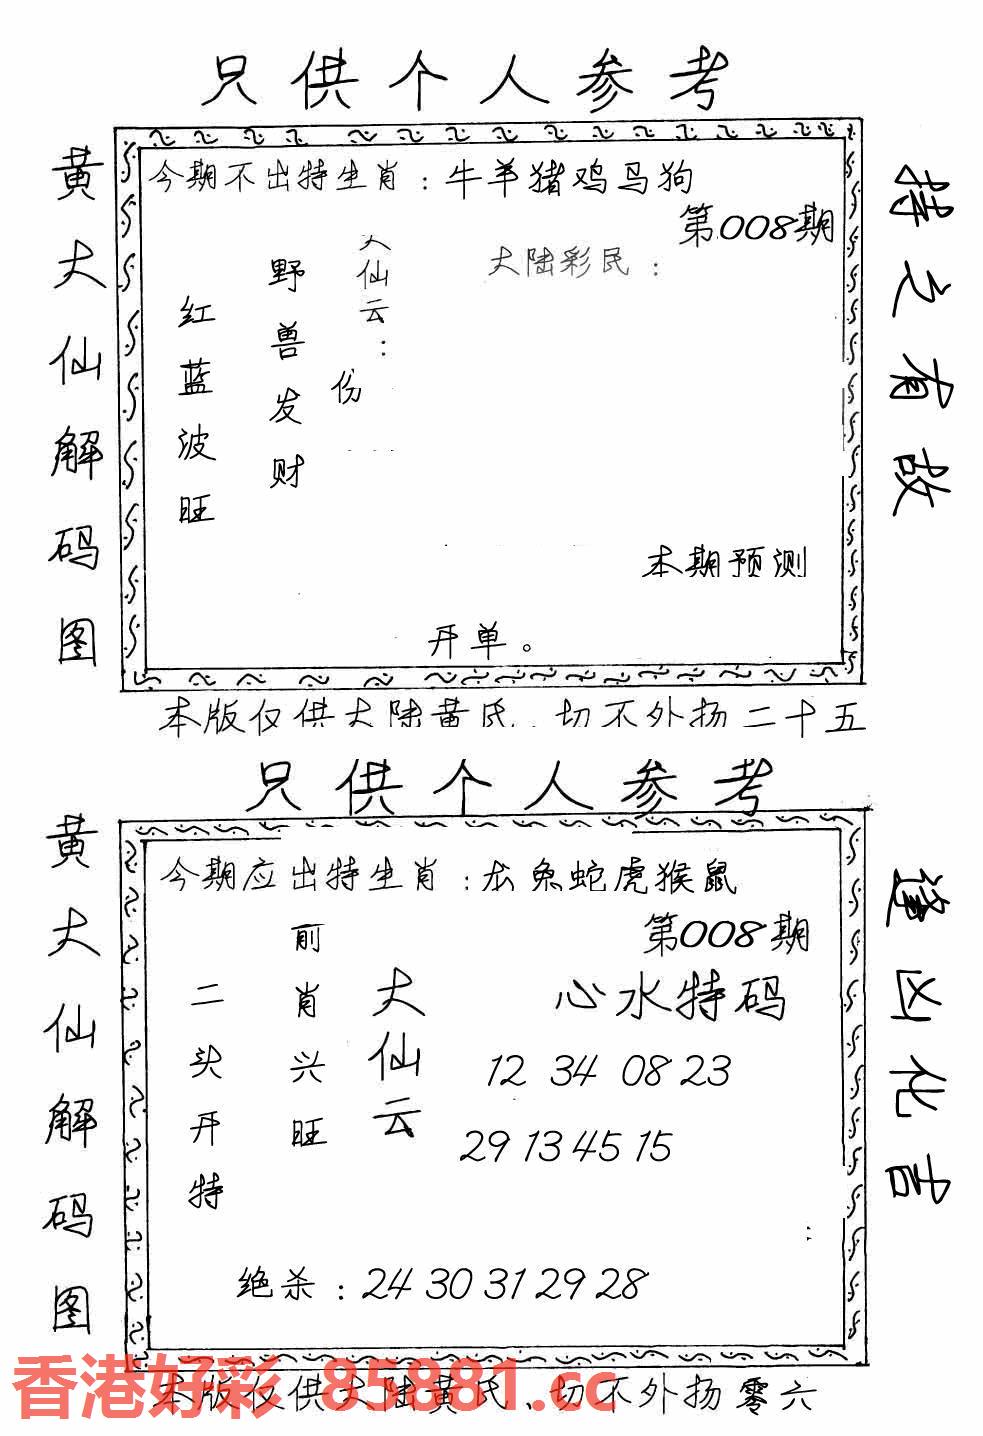 只供个人参考
黄大仙解码图
今期不出特生肖：牛羊猪鸡马狗
第008期
大陆彩民：
大仙云：
野兽发财
份
红蓝波旺
本期预测
开单。
持之有故
本版仅供大陆黄氏 切不外扬二十五
只供个人参考
黄大仙解码图
今期应出特生肖：龙兔蛇虎猴鼠
第008期
心水特码
大仙云
前肖兴旺
二头开特
12 34 08 23
29 13 45 15
绝杀：24 30 31 29 28
逢凶化吉
香港好彩 85881.cc
本版仅供大陆黄氏、切不外扬零六